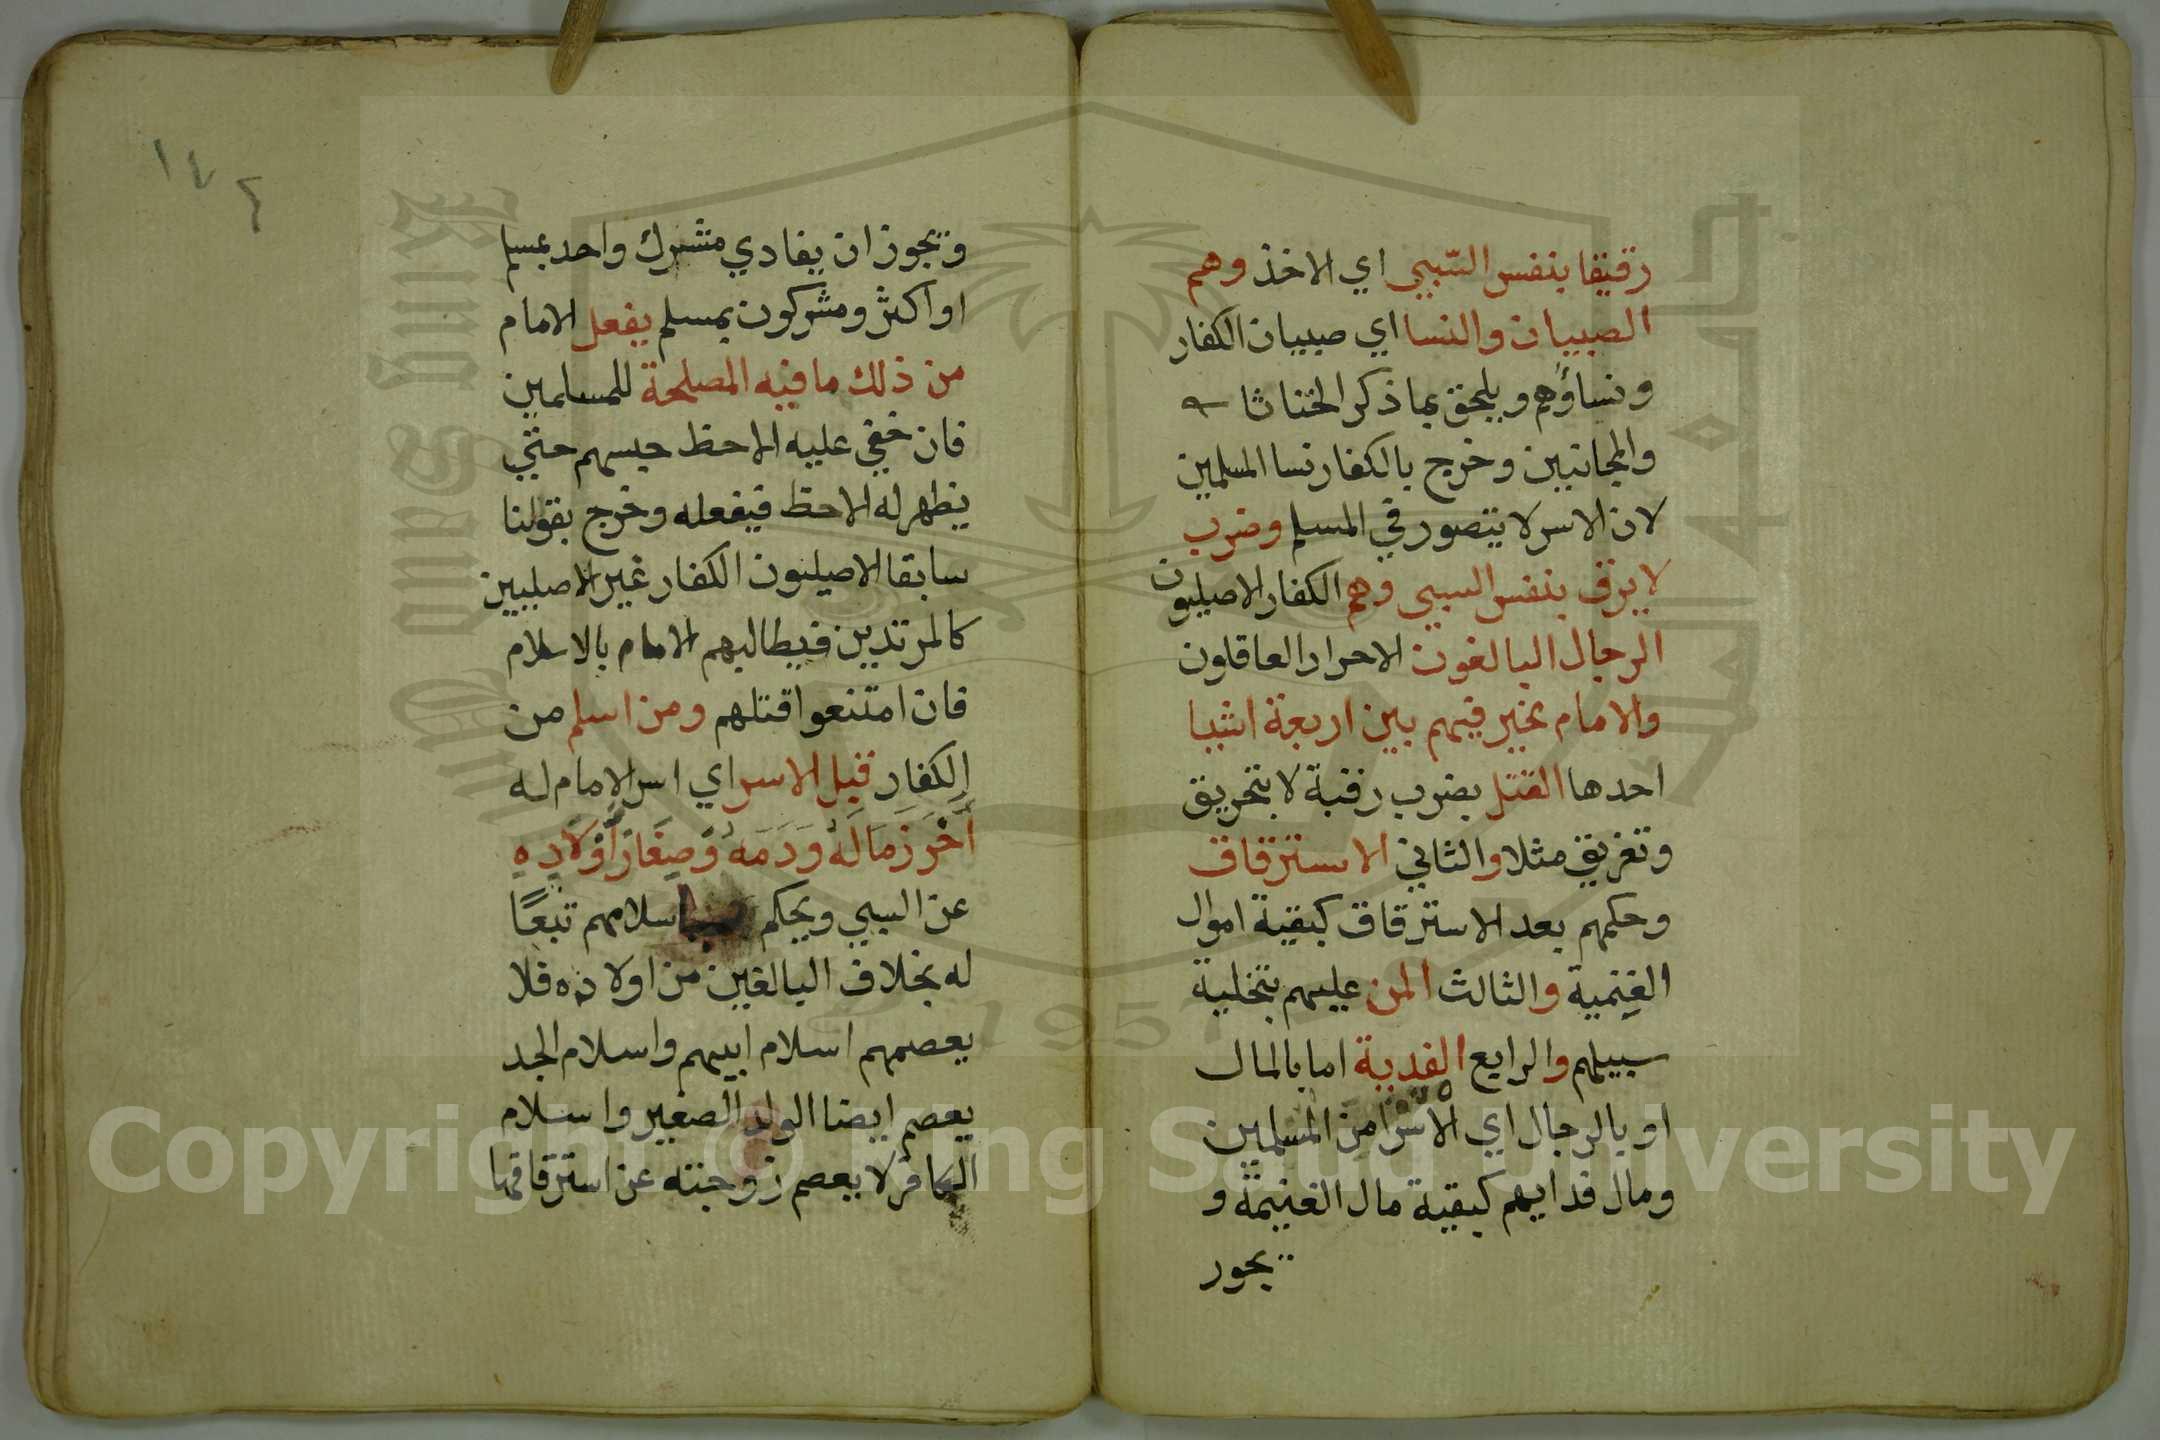 رقيقا بنفس السّبي اي الاخذ وهم
الصبيان والنسا اي صبيان الكفار
ونساؤهم ويلحق بما ذكر الخناثا
والمجانين وخرج بالكفار نسا المسلمين
لان الاسر لا يتصور في المسلم وضرب
لا يرق بنفس السبي وهم الكفار الاصليون
الرجال البالغون الاحرار العاقلون
والامام مخير فيهم بين اربعة اشيا
احدها القتل بضرب رقبة لا بتحريق
وتغريق مثلا والثاني الاسترقاق
وحكمهم بعد الاسترقاق كبقية اموال
الغنيمة والثالث المن عليهم بتخلية
سبيلهم والرابع الفدية اما بالمال
او بالرجال اي الاسرا من المسلمين
ومال فدايهم كبقية مال الغنيمة و
يجوز
١٧٤
ويجوز ان يفادي مشرك واحد بمسلم
او اكثر ومشركون بمسلم يفعل الامام
من ذلك ما فيه المصلحة للمسلمين
فان خفي عليه الاحظ حبسهم حتي
يظهر له الاحظ فيفعله وخرج بقولنا
سابقا الاصليون الكفار غير الاصليين
كالمرتدين فيطالبهم الامام بالاسلام
فان امتنعوا قتلهم ومن اسلم من
الكفار قبل الاسر اي اسر الامام له
أَحْرَزَ مَالَهُ وَدَمَهُ وَصِغَارَ أَوْلَادِهِ
عن السبي ويحكم باسلامهم تبعًا
له بخلاف البالغين من اولاده فلا
يعصمهم اسلام ابيهم واسلام الجد
يعصم ايضا الولد الصغير واسلام
الكافر لا يعصم زوجته عن استرقاقها
Copyright © King Saud University
King Saud University
جامعة الملك سعود
1957